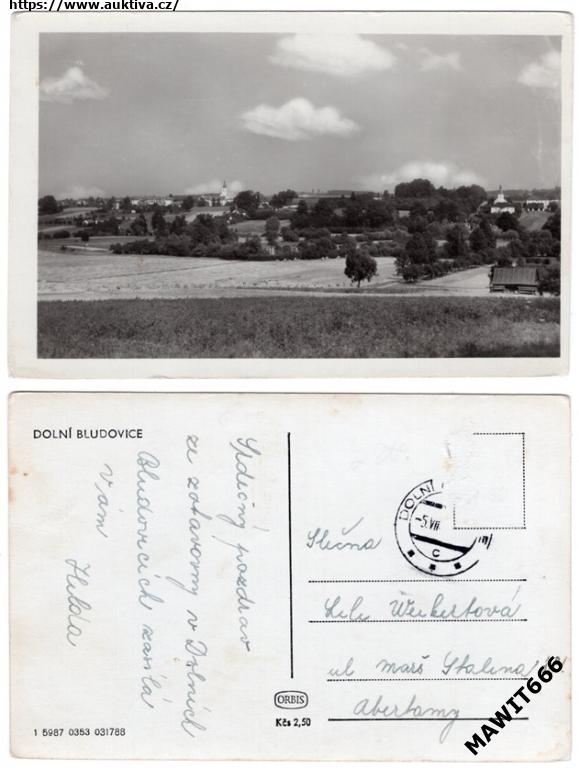 https://www.auktiva.cz/
DOLNÍ BLUDOVICE
Srdečný pozdrav
ze zotavovny v Dolních
Bludovicích zasílá
Vám
Hilda
DOLNÍ
-5.VII
C
Slečna
Weikertová
ul marš Stalina
Abertamy
ORBIS
Kčs 2,50
1 5987 0353 031788
MAWIT666